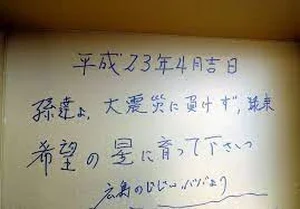 平成23年4月吉日
孫達よ、大震災に負けず、
希望の星に育って下さいっ
広島のじじぃ、ババより